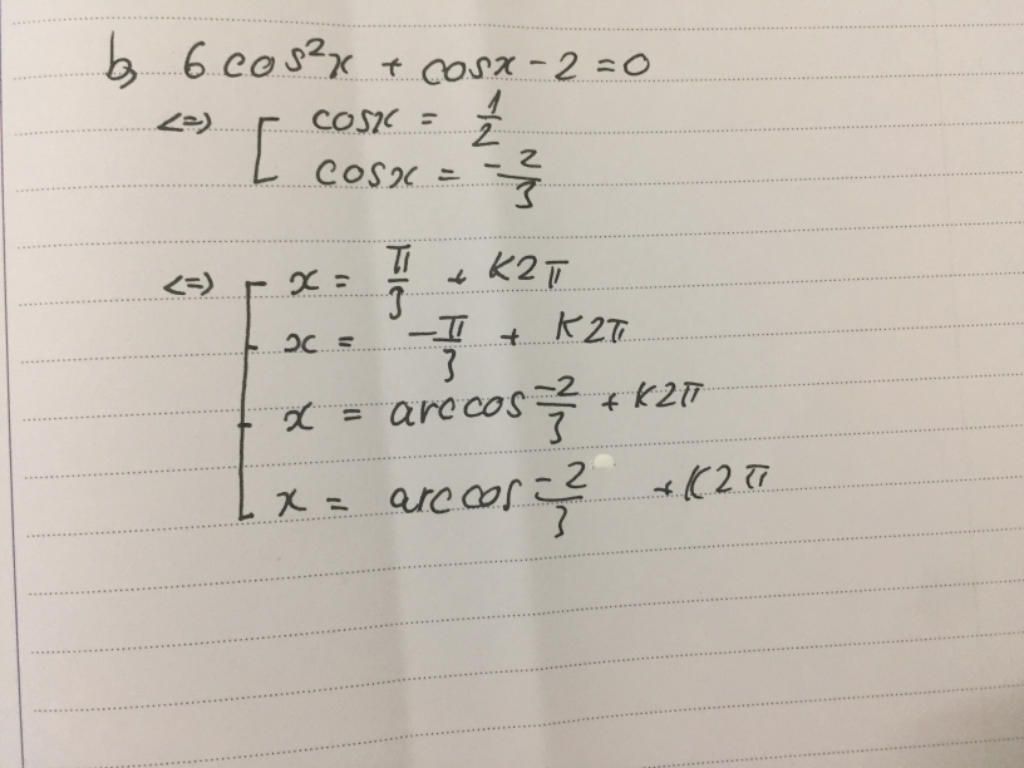 b, 6 cos²x + cosx - 2 = 0
<=> [ cosx = 1/2
cosx = -2/3
<=> [ x = π/3 + K2π
x = -π/3 + K2π
x = arccos -2/3 + K2π
x = arccos -2/3 + K2π